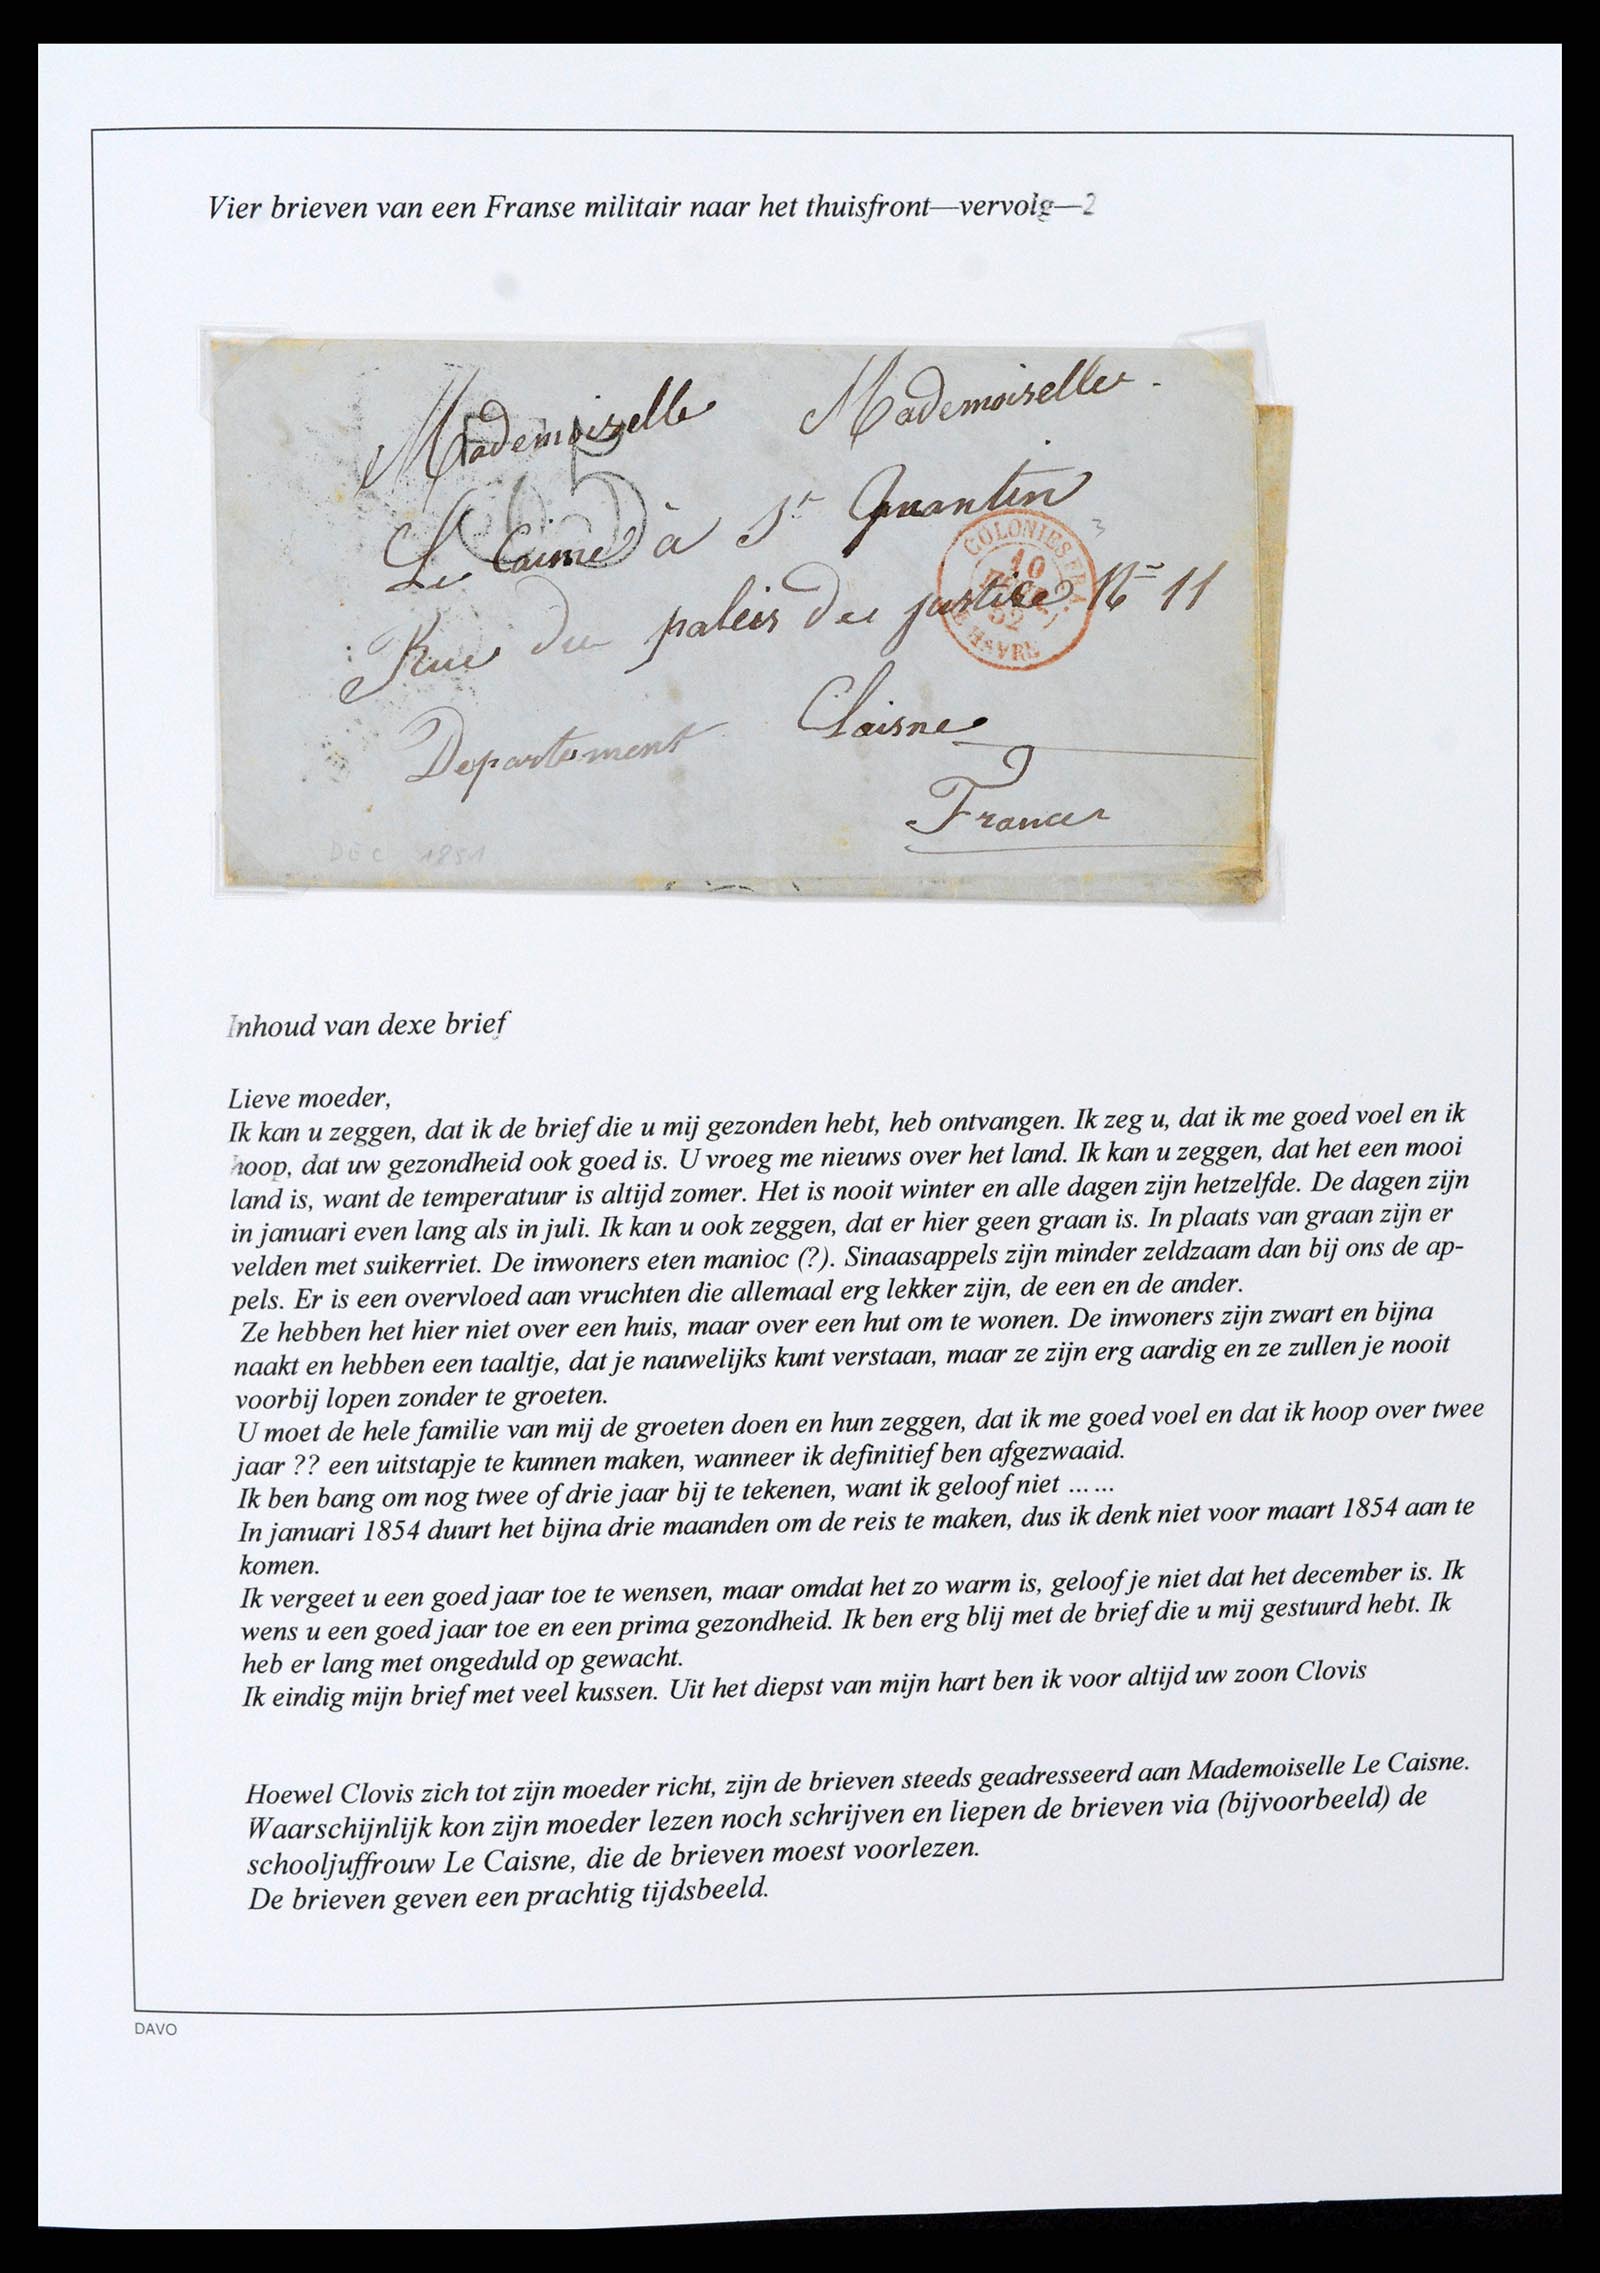 Vier brieven van een Franse militair naar het thuisfront—vervolg—2
Mademoiselle Mademoiselle
65
Le Caisne à St Quantin
COLONIES FRA
10
52
LE HAVRE
Rue du palais de justice No 11
Departement Laisne
France
DEC 1851
Inhoud van dexe brief
Lieve moeder,
Ik kan u zeggen, dat ik de brief die u mij gezonden hebt, heb ontvangen. Ik zeg u, dat ik me goed voel en ik
hoop, dat uw gezondheid ook goed is. U vroeg me nieuws over het land. Ik kan u zeggen, dat het een mooi
land is, want de temperatuur is altijd zomer. Het is nooit winter en alle dagen zijn hetzelfde. De dagen zijn
in januari even lang als in juli. Ik kan u ook zeggen, dat er hier geen graan is. In plaats van graan zijn er
velden met suikerriet. De inwoners eten manioc (?). Sinaasappels zijn minder zeldzaam dan bij ons de ap-
pels. Er is een overvloed aan vruchten die allemaal erg lekker zijn, de een en de ander.
Ze hebben het hier niet over een huis, maar over een hut om te wonen. De inwoners zijn zwart en bijna
naakt en hebben een taaltje, dat je nauwelijks kunt verstaan, maar ze zijn erg aardig en ze zullen je nooit
voorbij lopen zonder te groeten.
U moet de hele familie van mij de groeten doen en hun zeggen, dat ik me goed voel en dat ik hoop over twee
jaar ?? een uitstapje te kunnen maken, wanneer ik definitief ben afgezwaaid.
Ik ben bang om nog twee of drie jaar bij te tekenen, want ik geloof niet ……
In januari 1854 duurt het bijna drie maanden om de reis te maken, dus ik denk niet voor maart 1854 aan te
komen.
Ik vergeet u een goed jaar toe te wensen, maar omdat het zo warm is, geloof je niet dat het december is. Ik
wens u een goed jaar toe en een prima gezondheid. Ik ben erg blij met de brief die u mij gestuurd hebt. Ik
heb er lang met ongeduld op gewacht.
Ik eindig mijn brief met veel kussen. Uit het diepst van mijn hart ben ik voor altijd uw zoon Clovis
Hoewel Clovis zich tot zijn moeder richt, zijn de brieven steeds geadresseerd aan Mademoiselle Le Caisne.
Waarschijnlijk kon zijn moeder lezen noch schrijven en liepen de brieven via (bijvoorbeeld) de
schooljuffrouw Le Caisne, die de brieven moest voorlezen.
De brieven geven een prachtig tijdsbeeld.
DAVO